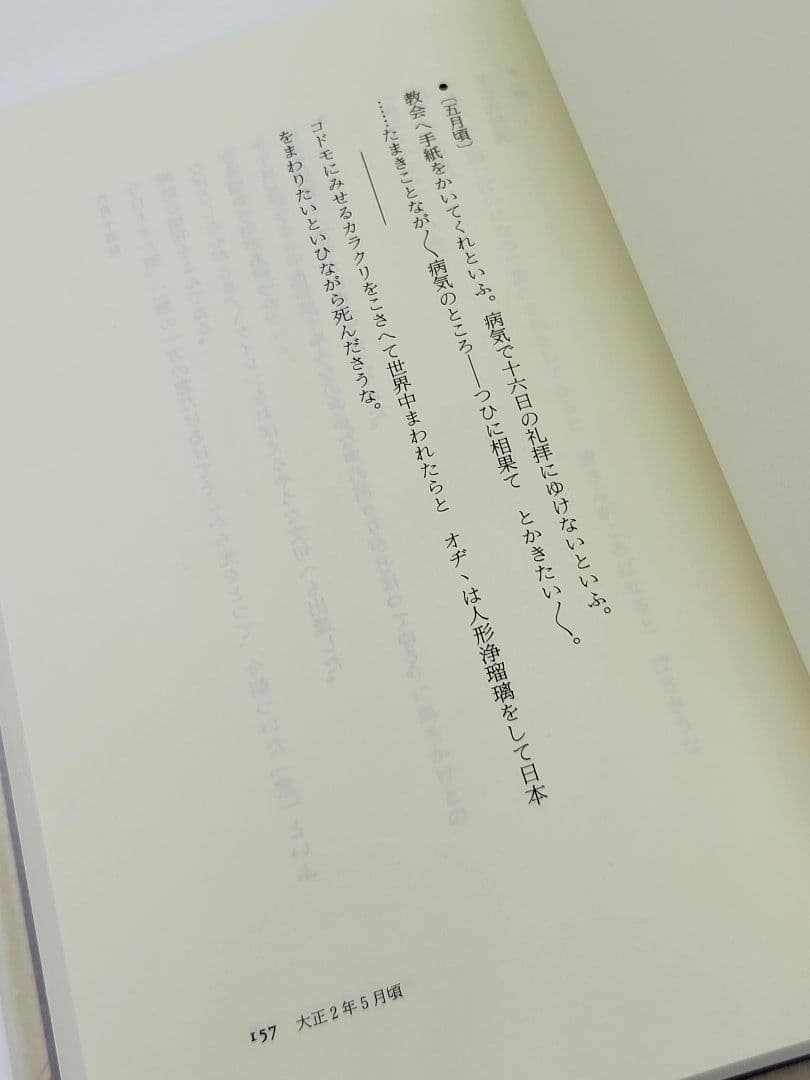 ●〔五月頃〕
教会へ手紙をかいてくれといふ。病気で十六日の礼拝にゆけないといふ。
……たまきことなが〱病気のところ――つひに相果て　とかきたい〱。
コドモにみせるカラクリをこさへて世界中まわれたらと　オヂヽは人形浄瑠璃をして日本
をまわりたいといひながら死んださうな。
157　大正2年5月頃